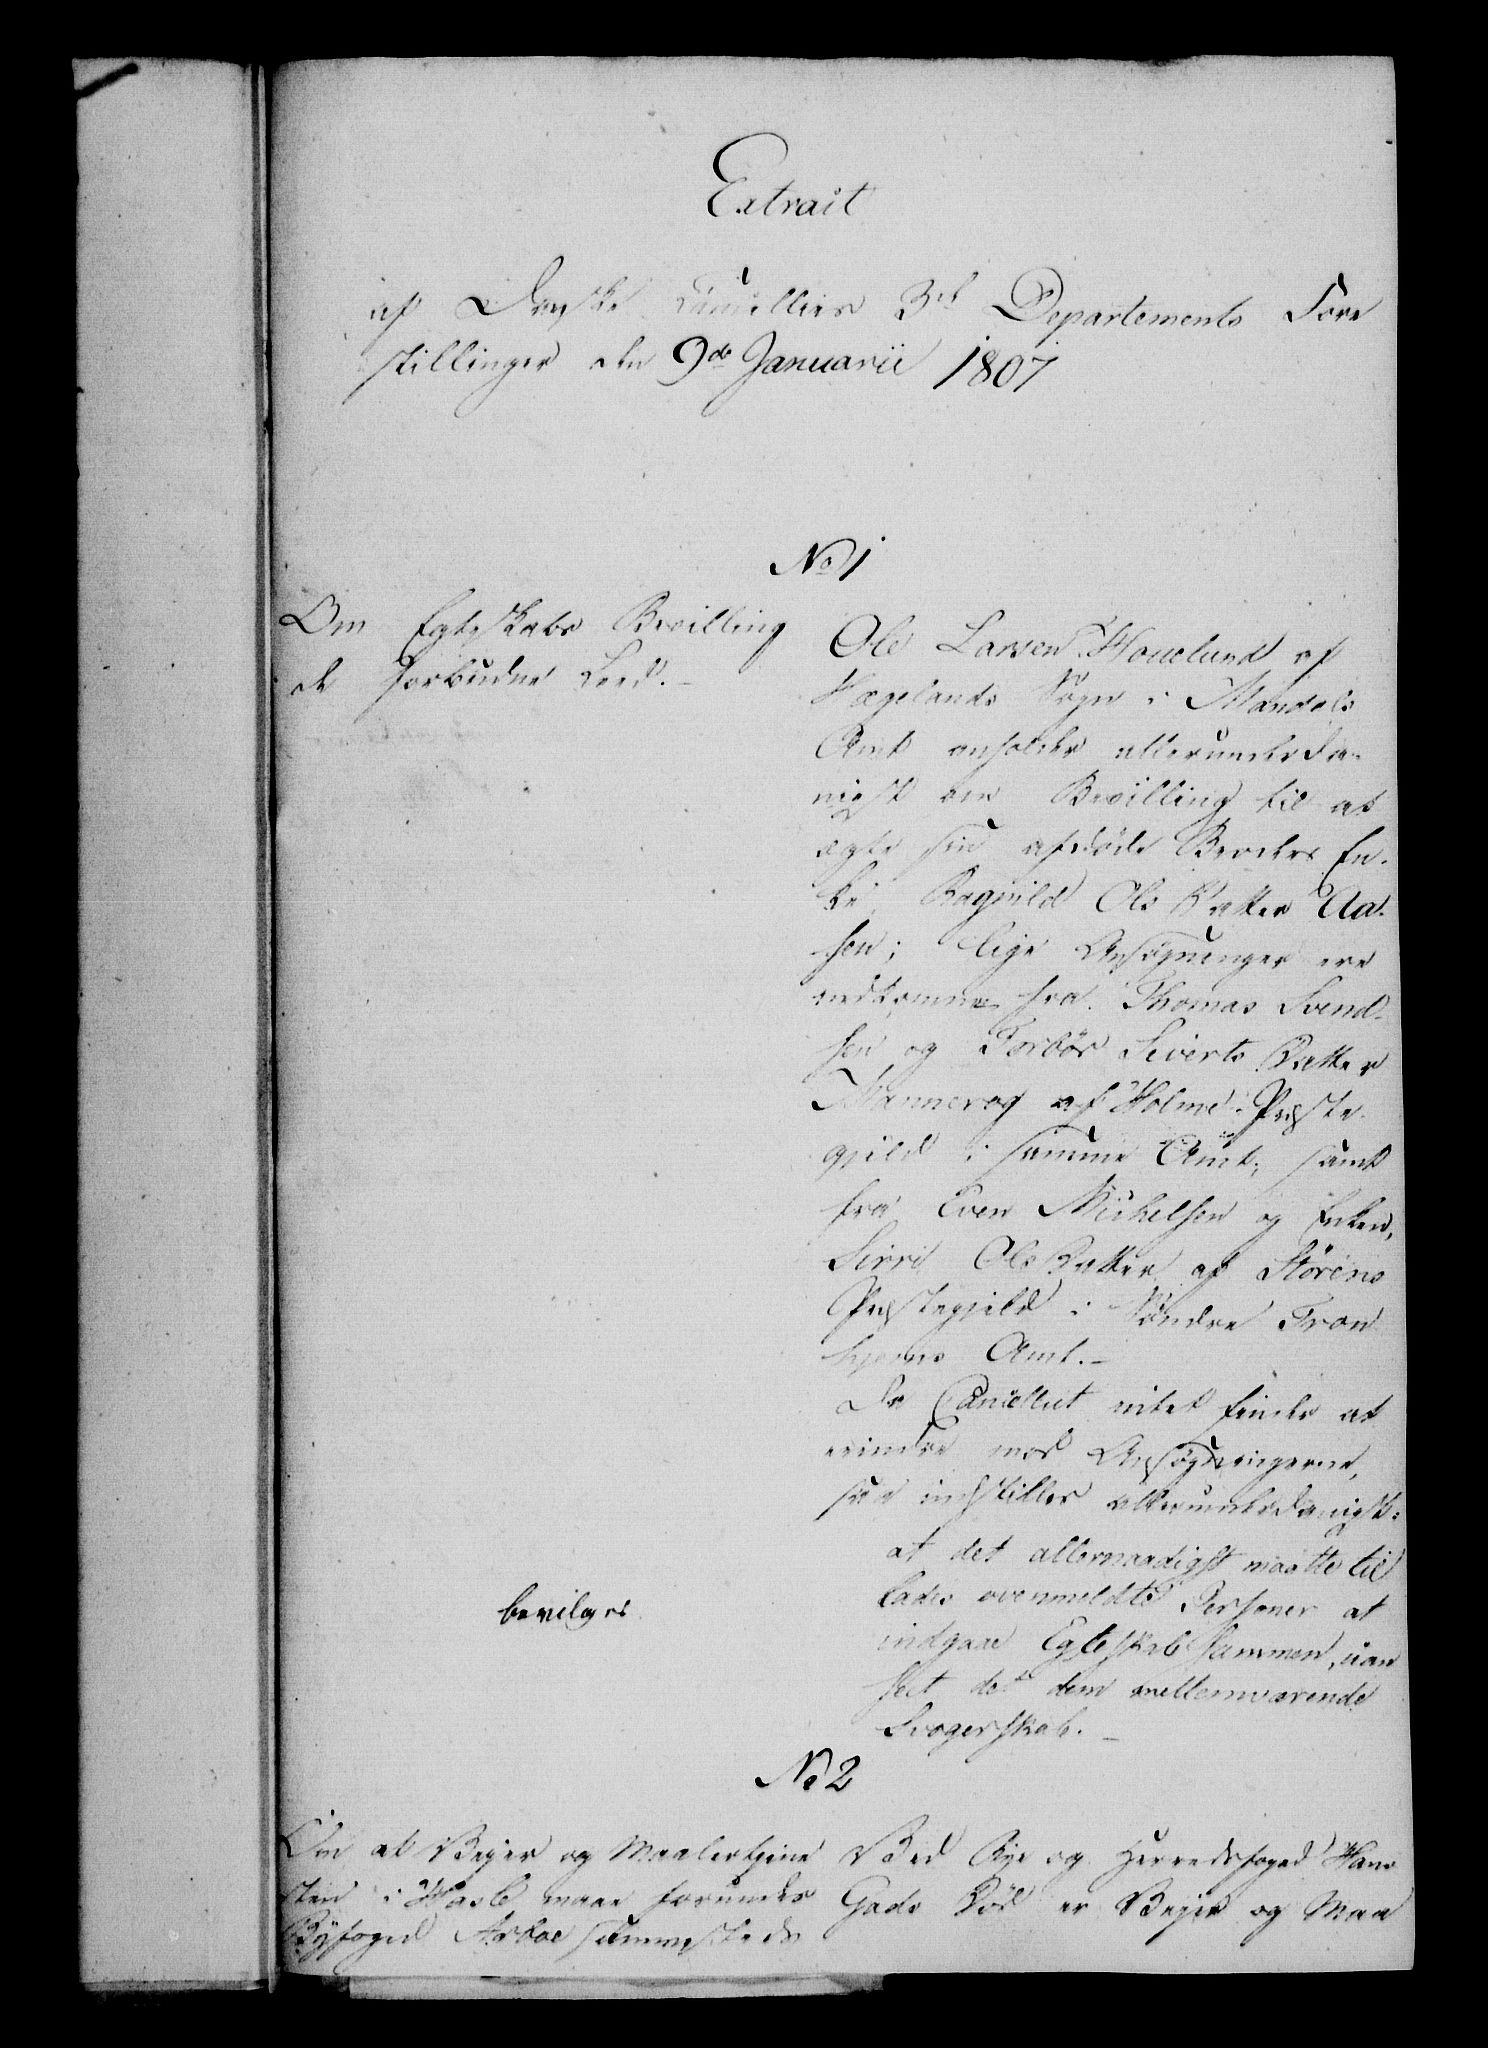 Extrait
af Danske Cancellies 3de Departements Fore
stillinger den 9de Januarii 1807
No 1
Om Egteskabs Bevilling
de forbudne Leed.-
Ole Larsen Houelund af
Hægelands Sogn i Mandals
Amt anholder allerunderda-
nigst om Bevilling til at
ægte sin afdøde Broders En-
ke Ragnild Ols Datter Aa-
sen; lige Ansøgninger ere
indkomne fra Thomas Svend-
sen og Torbør Siverts Datter
Mannerog af Holme Præste-
gjeld i samme Amt; samt
fra Even Michelsen og Enken,
Sirri Ols Datter af Störens
Præstegjeld i Søndre Tron
hjems Amt.-
Da Cancelliet intet finder at
erindre mod Ansøgningerne,
saa indstilles allerunderdanigst:
at det allernaadigst maatte til
lades ovenmeldte Personer at
indgaae Egteskab sammen, uan
seet det dem mellemværende
Svogerskab.-
bevilges
No 2
Om at Vejer og Maalertjene
sten i Hasle maae forundes
Byfoged Arboe sammesteds
Ved Bye og Herredsfoged Hans
Gads Död er Vejer og Maa